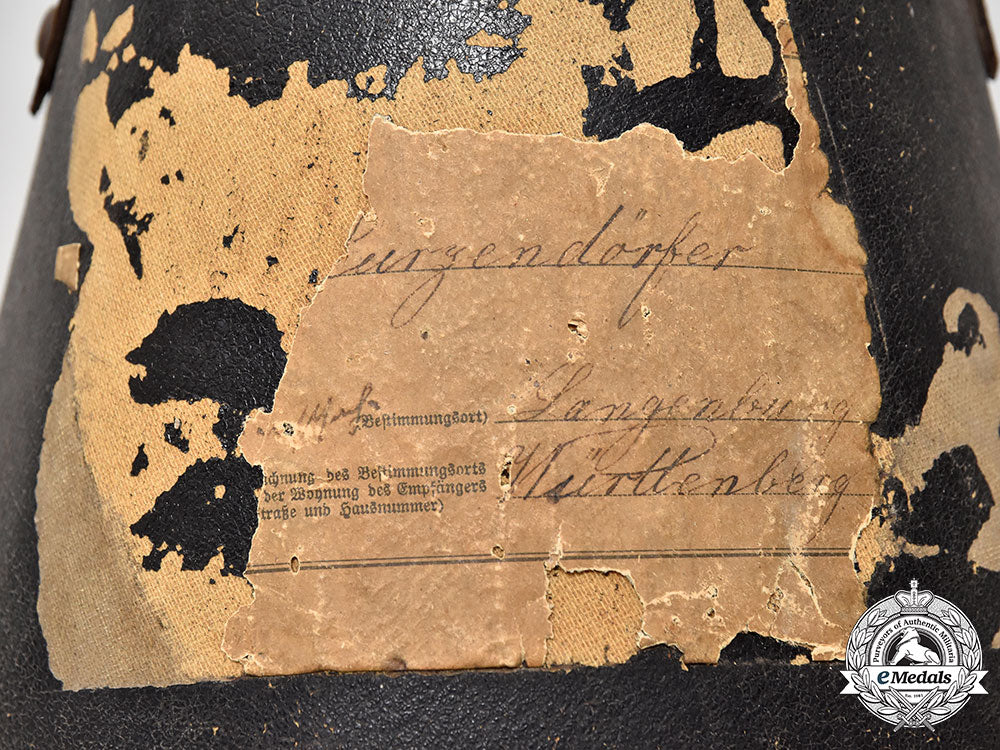 urgendörfer
(Bestimmungsort) Langenburg
chnung des Bestimmungsorts Württenberg
der Wohnung des Empfängers
traße und Hausnummer)
Purveyors of Authentic Militaria
eMedals